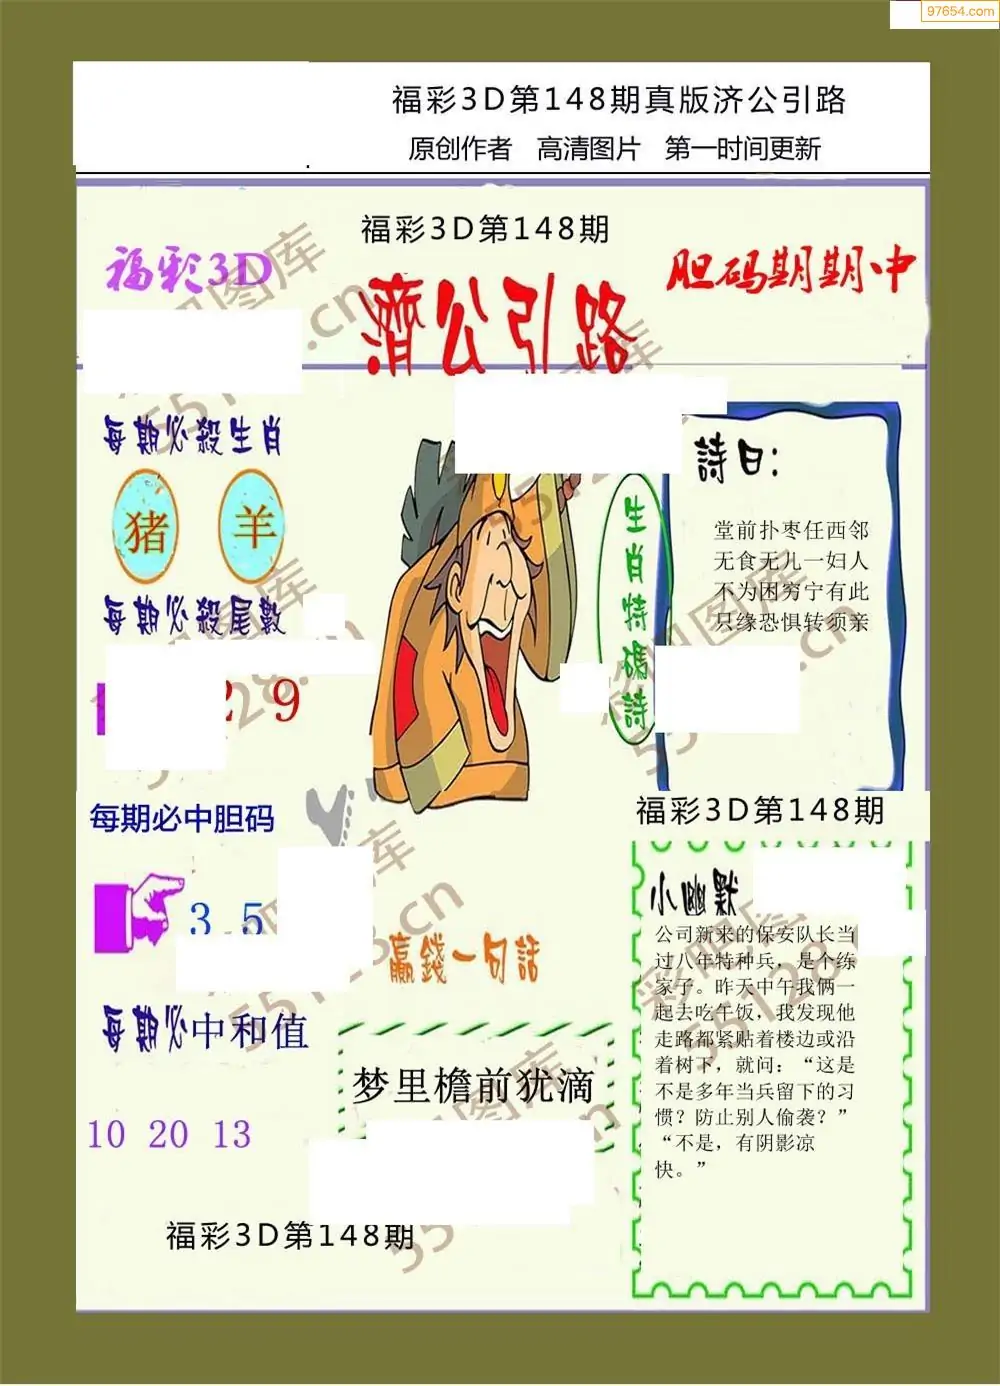 97654.com
福彩3D第148期真版济公引路
原创作者 高清图片 第一时间更新
福彩3D第148期
福彩3D
濟公引路
胆码期期中
每期必殺生肖
猪 羊
每期必殺尾數
2 9
每期必中胆码
3 5
每期必中和值
10 20 13
生肖特碼詩
詩曰:
堂前扑枣任西邻
无食无儿一妇人
不为困穷宁有此
只缘恐惧转须亲
福彩3D第148期
小幽默
公司新来的保安队长当
过八年特种兵，是个练
家子。昨天中午我俩一
起去吃午饭，我发现他
走路都紧贴着楼边或沿
着树下，就问：“这是
不是多年当兵留下的习
惯？防止别人偷袭？”
“不是，有阴影凉
快。”
赢錢一句話
梦里檐前犹滴
福彩3D第148期
彩吧图库
55128.cn